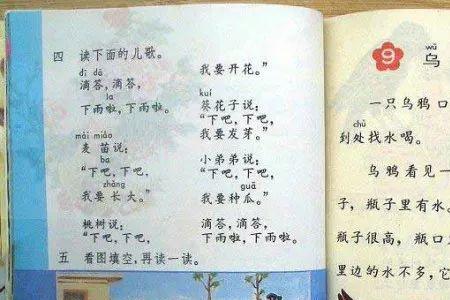 四 读下面的儿歌。
dī dā
滴答，滴答，
la
下雨啦，下雨啦。
mài miáo
麦苗说：
ba
“下吧，下吧，
zhǎng
我要长大。”
桃树说：
“下吧，下吧，
我要开花。”
kuí
葵花子说：
“下吧，下吧，
我要发芽。”
小弟弟说：
“下吧，下吧，
guā
我要种瓜。”
滴答，滴答，
下雨啦，下雨啦。
五 看图填空，再读一读。
9 wū
乌
一只乌鸦口
chù
到处找水喝。
乌鸦看见一
子，瓶子里有水。
瓶子很高，瓶口
里边的水不多，它